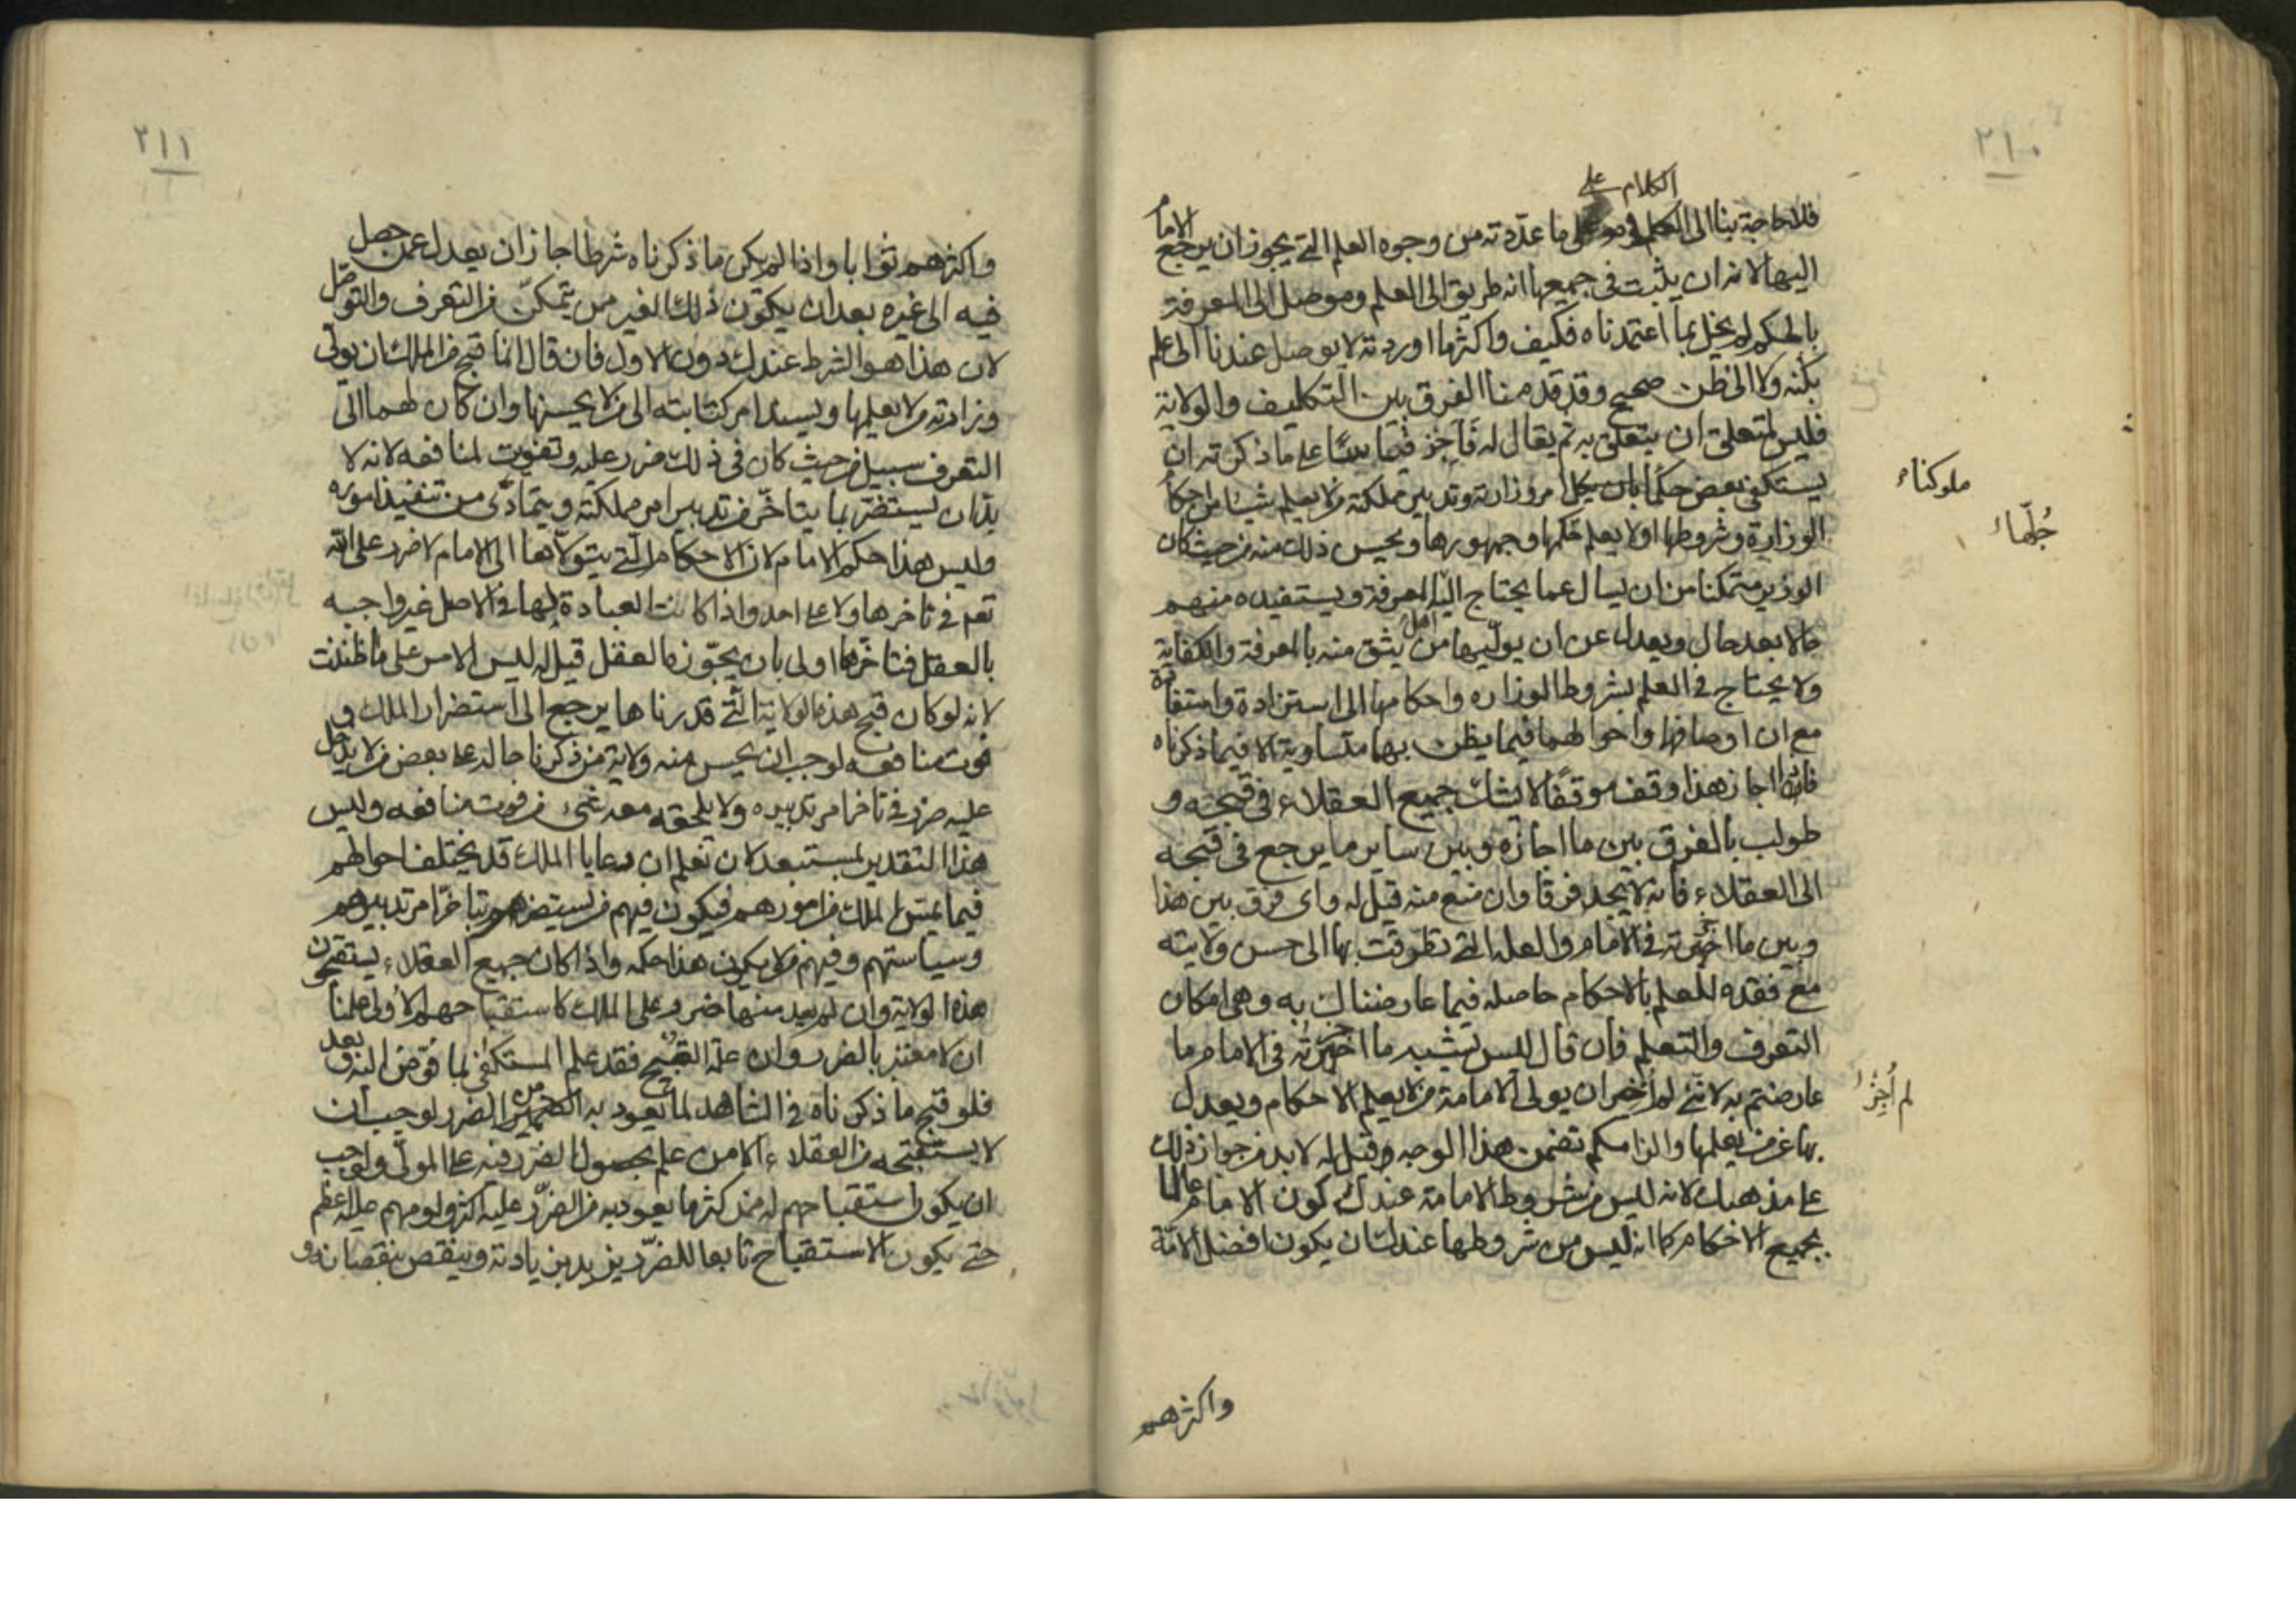 ٢١٠
الكلام على
فلا حاجة بنا الى ما عددته من وجوه العلم التي يجوز ان يرجع الامام
اليها لانه ان يثبت في جميعها انه طريق الى العلم وموصل الى المعرفة
بالحكم لم يخل بما اعتمدناه فكيف واكثر ما اوردته لا يوصل عندنا الى علم
بكنه ولا الى ظن صحيح وقد قدمنا الفرق بين التكليف والولاية
فليس لمتعلق ان يتعلق به ثم يقال له فاجز قياسا على ما ذكرته ان
يستكفي بعض حكمانا امر وزارته وتدبير مملكته من لا يعلم شيئا من احكام
ملوكنا
الوزارة وشروطها او لا يعلم جلها وجمهورها ويحسن ذلك منه من حيث كان
جُلّها
الوزير متمكنا من ان يسال عما يحتاج اليه اهل المعرفة ويستفيده منهم
حالا بعد حال ويعدل عن ان يوليها من يثق منه بالمعرفة والكفاية
ولا يحتاج في العلم بشروط الوزارة واحكامها الى استزادة واستفادة
مع ان اوصافها واحوالهما فيما يظن بها متساوية الا فيما ذكرناه
فان اجاز هذا وقف موقفا لا يشك جميع العقلاء في قبحه و
طولب بالفرق بين ما اجازه وبين ساير ما يرجع في قبحه
الى العقلاء فانه لا يجد فرقا وان منع منه قيل له واى فرق بين هذا
وبين ما اجزته في الامام والعلة التي تطرقت بها الى حسن ولايته
مع فقده للعلم بالاحكام حاصله فيما عارضناك به وهي امكان
التعرف والتعلم فان قال ليس يشبه ما اجزته في الامام ما
عارضتم به لانني لم اجز ان يولى الامامة من لا يعلم الاحكام ويعدل
لم أجِز
بها عن من يعلمها والزامكم تضمن هذا الوجه قيل له لا بد من جواز ذلك
على مذهبك لانه ليس من شروط الامامة عندك كون الامام عالما
بجميع الاحكام كما انه ليس من شروطها عندك ان يكون افضل الامة
واكثرهم
٢١١
واكثرهم ثوابا واذا لم يكن ما ذكرناه شرطا جاز ان يعدل عمن حصل
فيه الى غيره بعد ان يكون ذلك الغير ممن يتمكن من التعرف والتوصل
لان هذا هو الشرط عندك دون الاول فان قال انما قبح من الملك ان يولى
وزارته من لا يعلمها ويسند امر كتابته الى من لا يحسنها وان كان لهما الى
التعرف سبيل من حيث كان في ذلك ضرر عليه وتفويت لمنافعه لانه لا
بد ان يستضر بما يتاخر من تدبير امر مملكته ويتمادى من تنفيذ اموره
وليس هذا حكم الامام لان الاحكام التي يتولاها الى الامام لا ضرر على الله
تعم في تاخرها ولا على احد واذا كانت العبادة بها في الاصل غير واجبه
بالعقل فتاخرها اولى بان يجوز في العقل قيل له ليس الامر على ما ظننت
لانه لو كان قبح هذه الولاية التي قدرناها يرجع الى استضرار الملك و
فوت منافعه لوجب ان يحسن منه ولاية من ذكرنا حاله على بعض من لا يدخل
عليه ضرر في تاخر امر تدبيره ولا يلحقه معه شئ من فوت منافعه وليس
هذا التقدير بمستبعد لان تعلم ان رعايا الملك قد يختلف احوالهم
فيما يمس الملك من امورهم فيكون فيهم من يستضر هو بتاخر امر تدبيرهم
وسياستهم وفيهم من لا يكون هذا حكمه واذا كان جميع العقلاء يستقبحون
هذه الولاية وان لم يعد منها ضرر على الملك كاستقباحهم الاولى علمنا
ان لا معتبر بالضرر وان علة القبح فقد علم المستكفي بما فوض اليه
فلو قبح ما ذكرناه في الشاهد لما يعود به من الضرر لوجب ان
لا يستقبحه من العقلاء الا من علم بحصول الضرر فيه على المولى ولوجب
ان يكون استقباحهم له عند كثر ما يعود به من الضرر عليه اكثر ولومهم عليه اعظم
حتى يكون الاستقباح تابعا للضرر يزيد بزيادته وينقص بنقصانه و